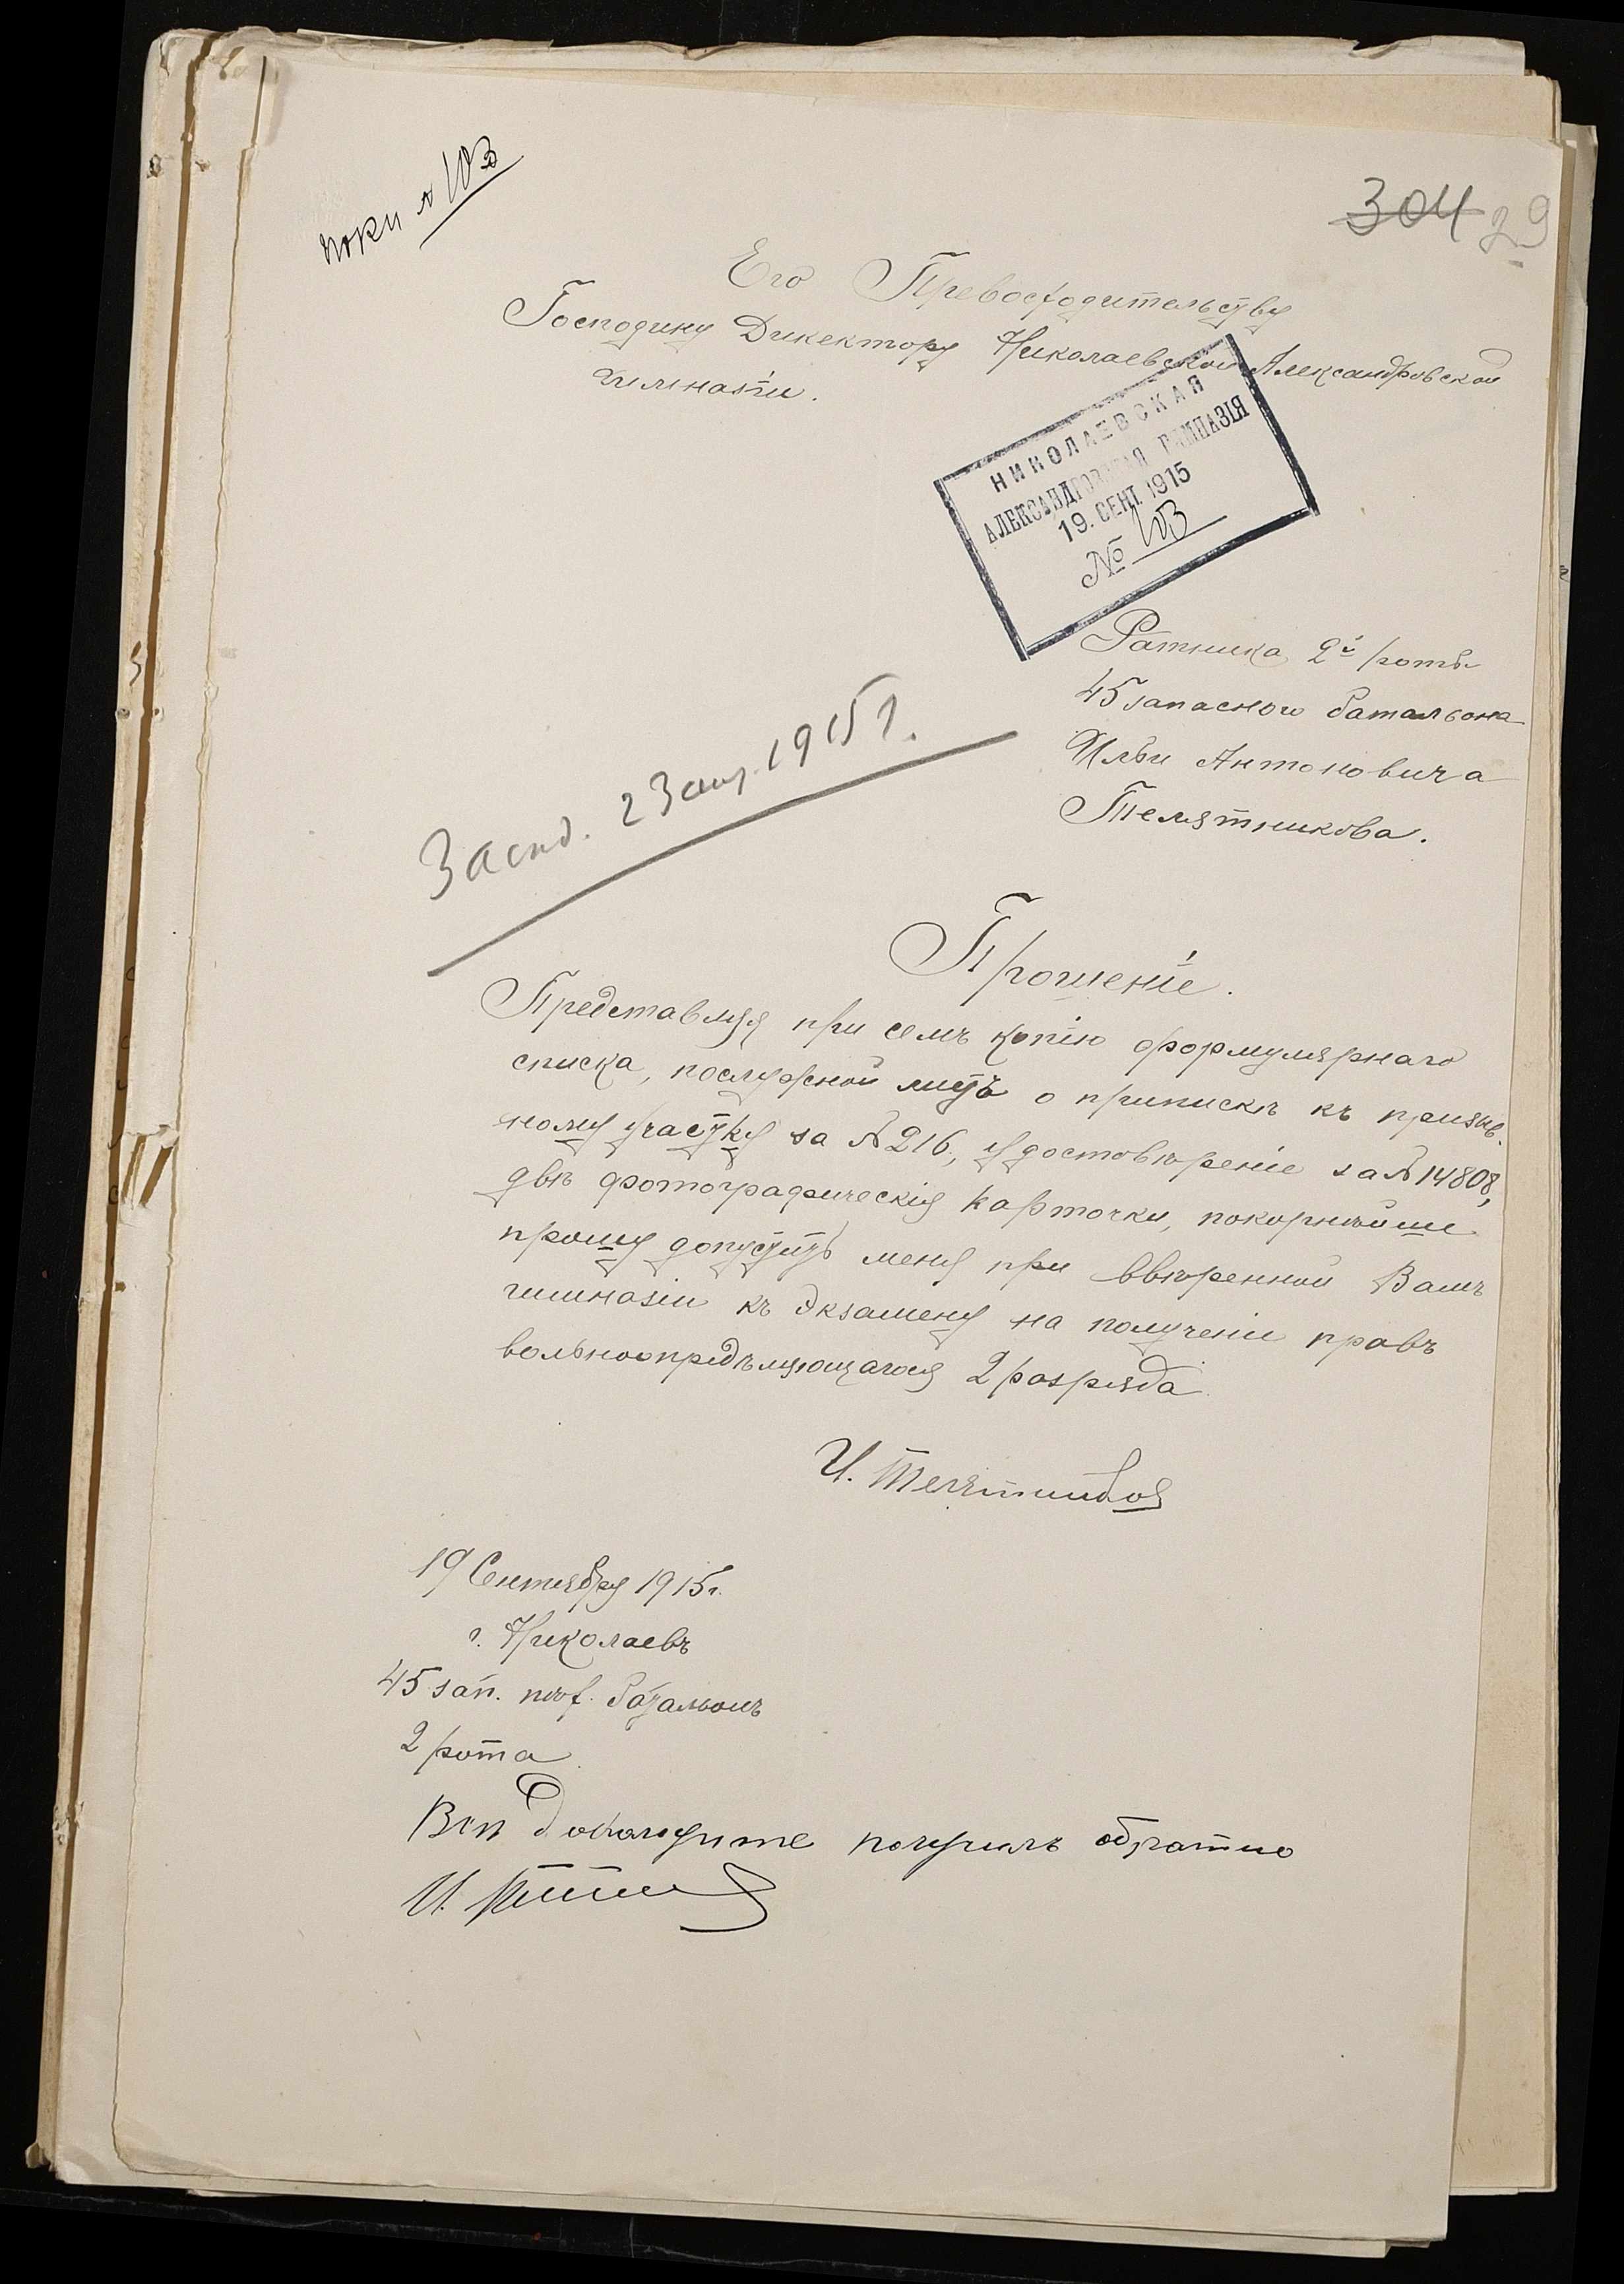 № 103
304 29
Его Превосходительству
Господину Дикектору Николаевской Александровской
гимназіи.
НИКОЛАЕВСКАЯ
АЛЕКСАНДРОВСКАЯ ГИМНАЗІЯ
19. СЕНТ. 1915
№ 103
Ратника 2й роты
45 запасного баталъона
Ильи Антоновича
Телятникова.
Засѣд. 23 сент. 1915 г.
Прошеніе.
Представляя при семъ копію формулярнаго
списка, послужной листъ о припискѣ къ призыв-
ному участку за № 216, удостовѣреніе за № 14808,
двѣ фотографическія карточки, покорнѣйше
прошу допустить меня при ввѣренной Вамъ
гимназіи къ экзамену на полученіе правъ
вольноопредѣляющагося 2 разряда.
И. Телятников
19 Сентября 1915 г.
г. Николаевъ
45 зап. пѣх. баталіонъ
2 рота
Всѣ документы получилъ обратно
И.